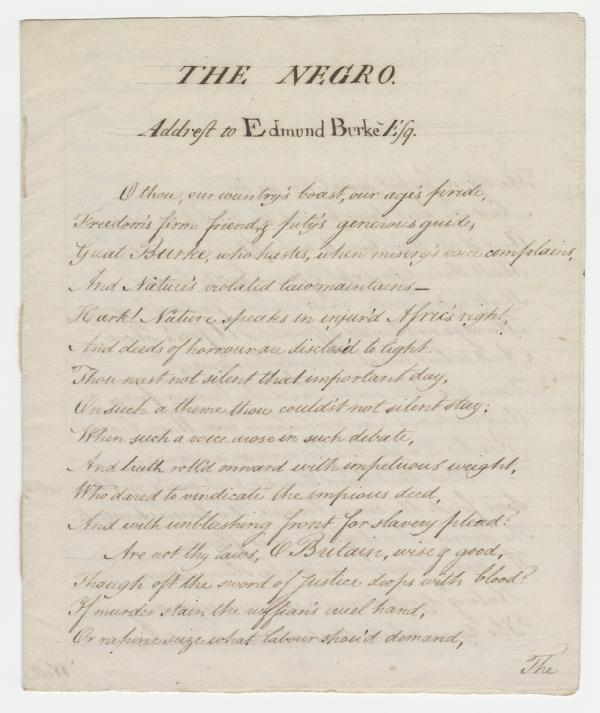 THE NEGRO.
Addrest to Edmund Burke Esq.
O thou, our country's boast, our age's pride,
Freedom's firm friend, & pity's generous guide,
Great Burke, who hastes, when misery's voice complains,
And Nature's violated law maintains—
Hark! Nature speaks in injur'd Afric's right,
And deeds of horrour are disclos'd to light.
Thou wast not silent that important day,
On such a theme thou could'st not silent stay:
When such a voice arose in such debate,
And truth roll'd onward with impetuous weight,
Who dared to vindicate the impious deed,
And with unblushing front for slavery plead?
Are not thy laws, O Britain, wise & good,
Though oft the sword of Justice drops with blood?
If murder stain the ruffian's cruel hand,
Or rapine seize what labour shou'd demand,
The